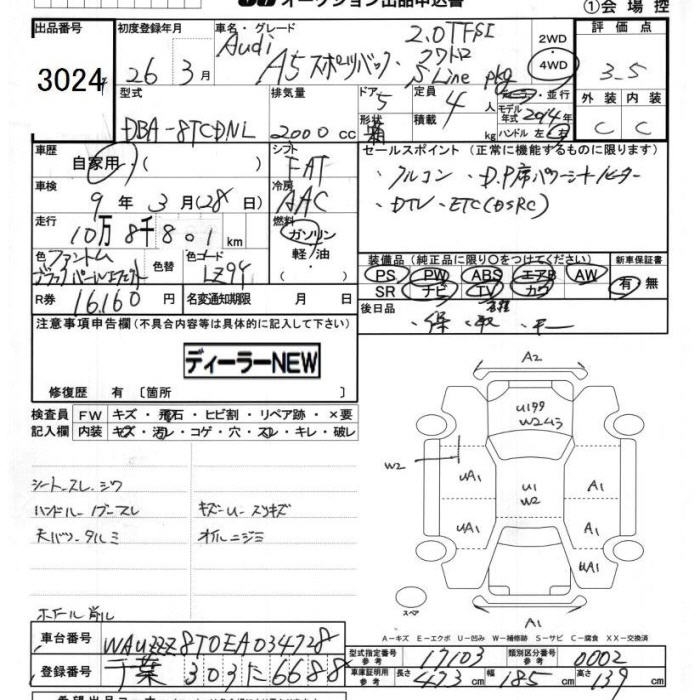 オークション出品申込書
①会場控
出品番号 初度登録年月 車名・グレード 評価点
3024
26年 3月
Audi A5 スポーツバック 2.0TFSI クワトロ S Line pkg
2WD 4WD
3.5
外装 内装
C C
型式 排気量 ドア 形状 定員 積載
DBA-8TCDNL 2000cc 5 4人 kg
・並行
モデル年式 2014年
ハンドル 左・右
車歴 自家用( )
シフト FAT
セールスポイント(正常に機能するものに限ります)
・アルコン・D.P席パワーシートヒーター
・DTV・ETC(DSRC)
車検 9年 3月(28日)
冷房 AAC
走行 10万8千801km
燃料 ガソリン・軽油・( )
色 ファントムブラックパールエフェクト 色替 色コード LZ9Y
装備品(純正品に限り○をつけてください) 新車保証書
PS PW ABS エアB AW
SR ナビ TV カワ
有・無
R券 16,160円 名変通知期限 月 日
後日品
・保・取・キー
注意事項申告欄(不具合内容等は具体的に記入して下さい)
ディーラーNEW
修復歴 有〔箇所 〕
検査員 FW キズ・飛石・ヒビ割・リペア跡・×要
記入欄 内装 キズ・汚レ・コゲ・穴・スレ・キレ・破レ
シートスレ・シワ
ハンドル・ノブ・スレ キズ・U・スリキズ
天バリ・タルミ オイルニジミ
ホイール削ル
A2
U199
W2ムラ
W2
UA1 U1 W2 A1
UA1 A1
UA1
スペア
A1
A-キズ E-エクボ U-凹み W-補修跡 S-サビ C-腐食 XX-交換済
車台番号 WAUZZZ8T0EA034728
登録番号 千葉 303 に 6688
型式指定番号 参考 17103 類別区分番号 参考 0002
車庫証明用 参考 長さ 473cm 幅 185cm 高さ 139cm